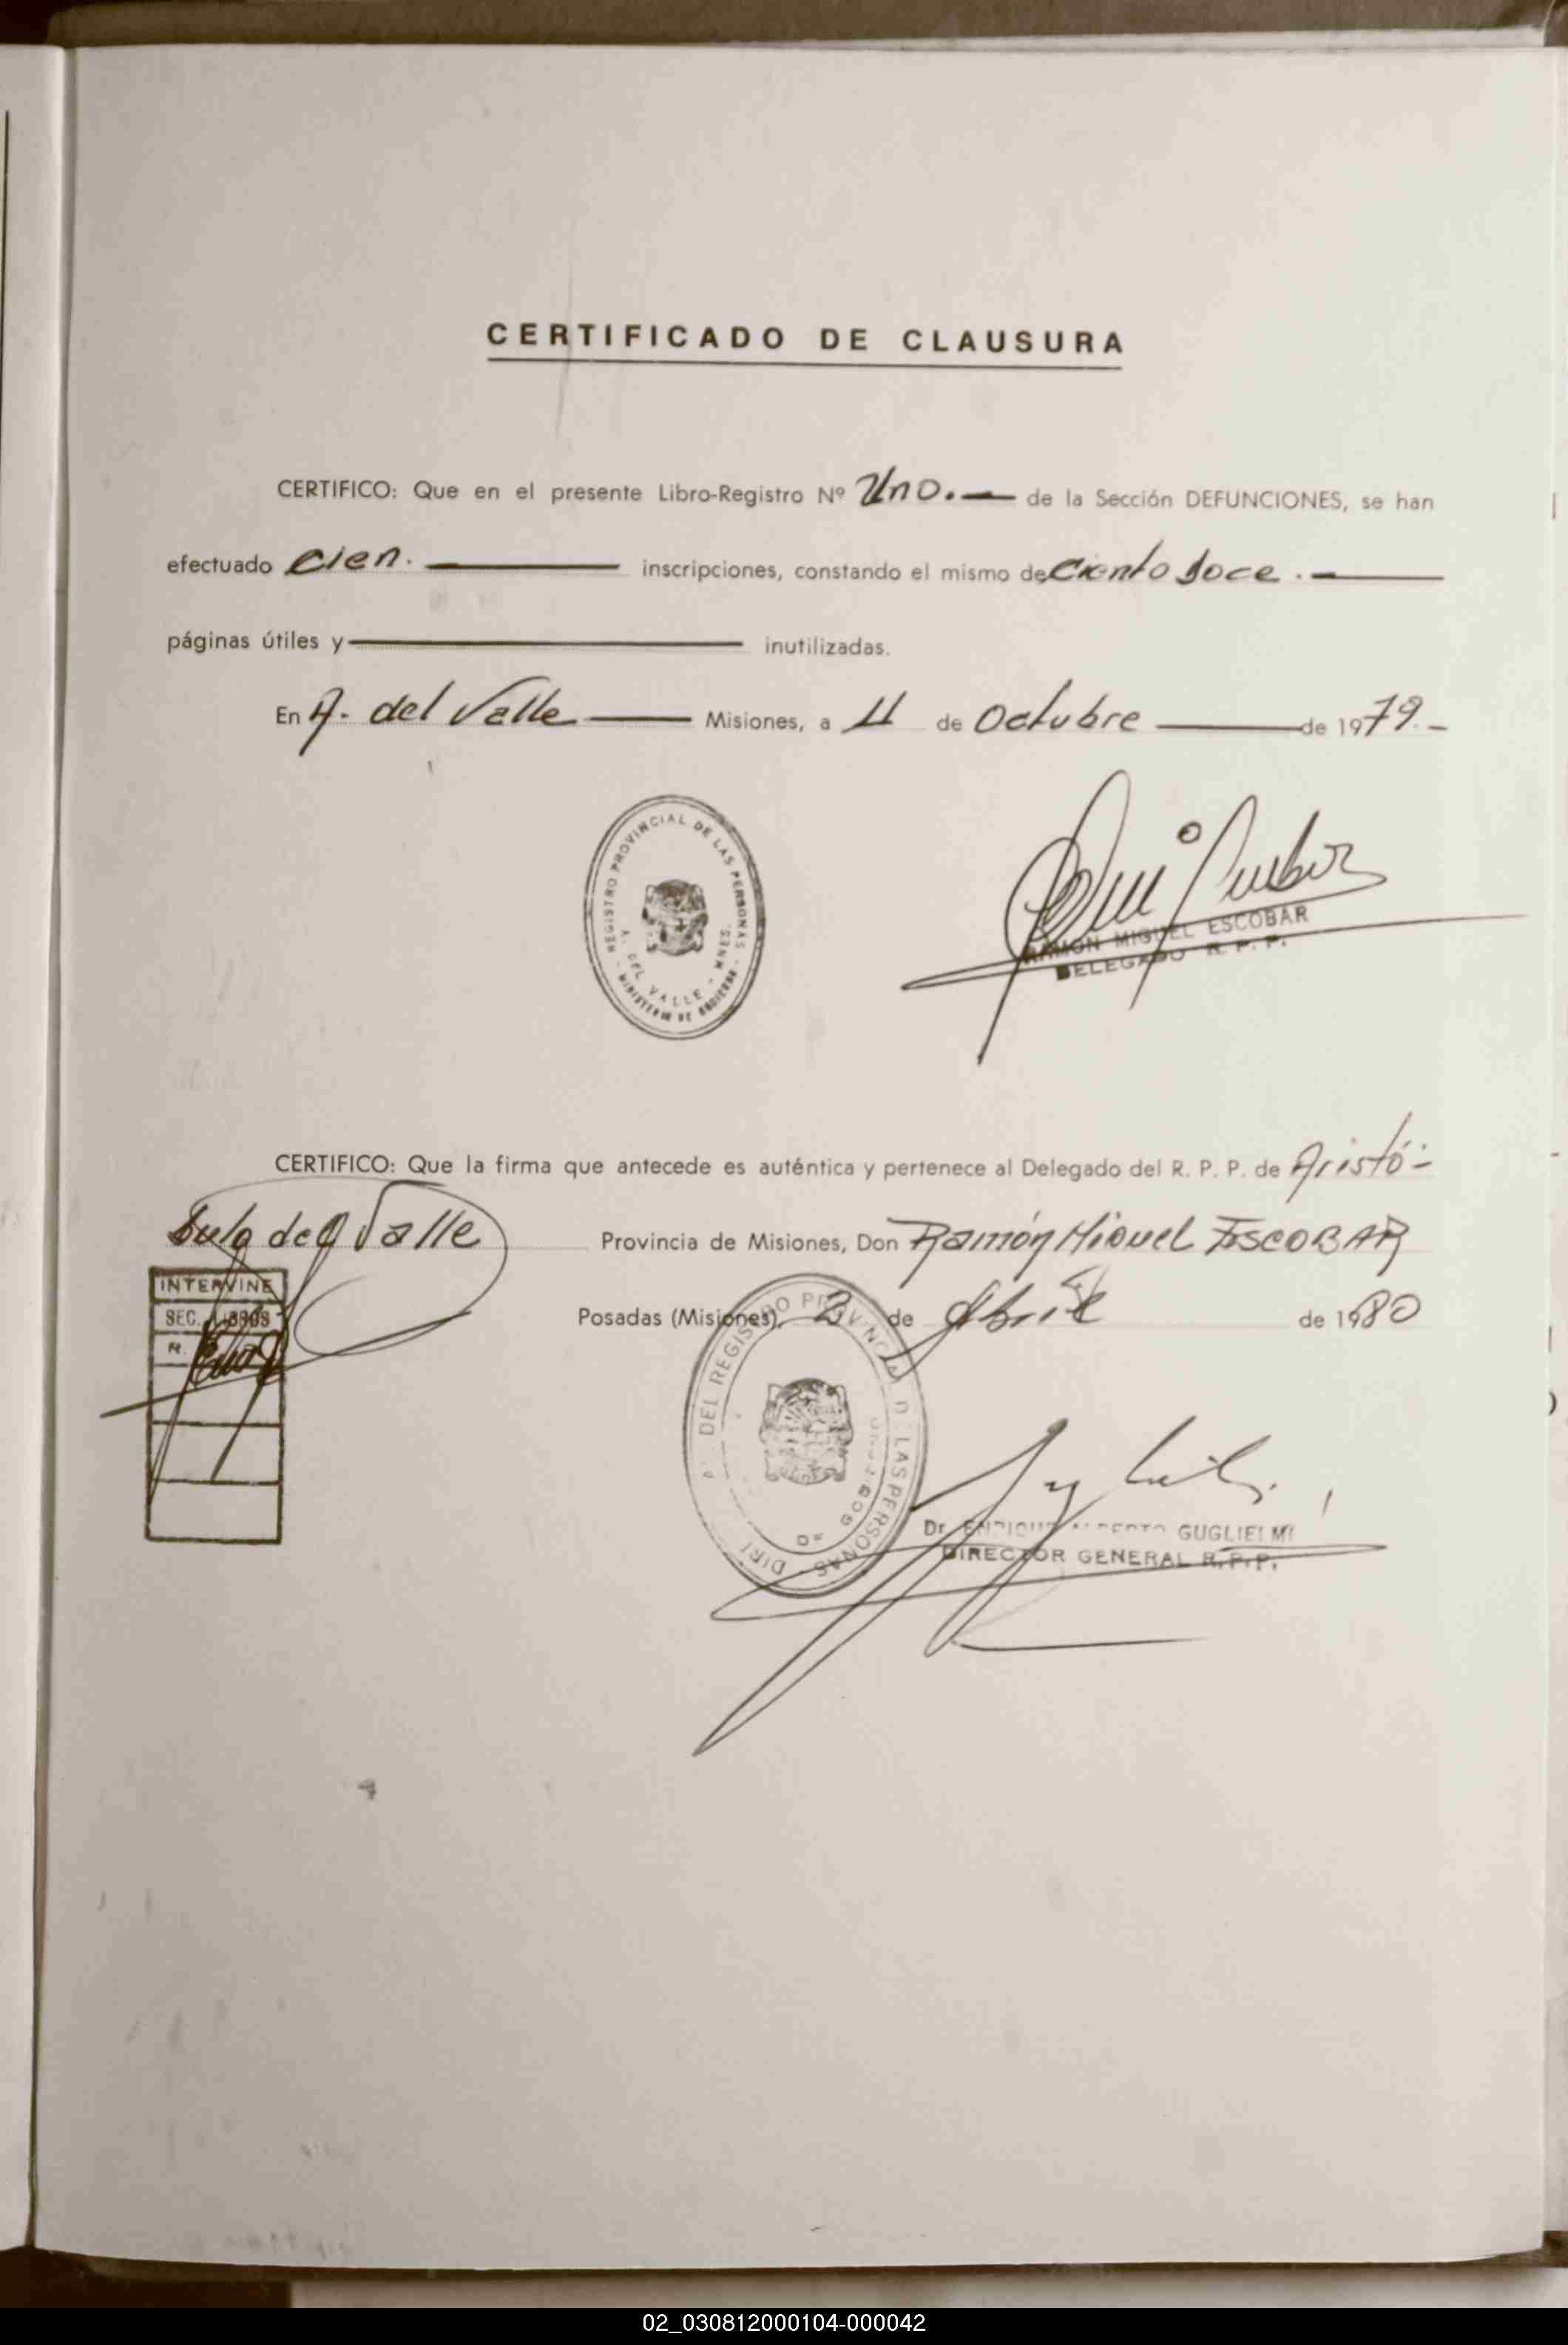 CERTIFICADO DE CLAUSURA
CERTIFICO: Que en el presente Libro-Registro Nº Uno.— de la Sección DEFUNCIONES, se han
efectuado Cien. — inscripciones, constando el mismo de Ciento doce.—
páginas útiles y — inutilizadas.
En A. del Valle — Misiones, a 11 de Octubre — de 1979.-
REGISTRO PROVINCIAL DE LAS PERSONAS
A. DEL VALLE - MNES.
- MINISTERIO DE GOBIERNO -
RAMON MIGUEL ESCOBAR
DELEGADO R. P. P.
CERTIFICO: Que la firma que antecede es auténtica y pertenece al Delegado del R. P. P. de Aristó-
bulo del Valle Provincia de Misiones, Don Ramón Miguel ESCOBAR
INTERVINE
Posadas (Misiones), 2 de Abril de 1980
SEC. LIBROS
R.
DEL REGISTRO PROVINCIAL DE LAS PERSONAS
Dr. ENRIQUE ALBERTO GUGLIELMI
DIRECTOR GENERAL R.P.P.
02_030812000104-000042